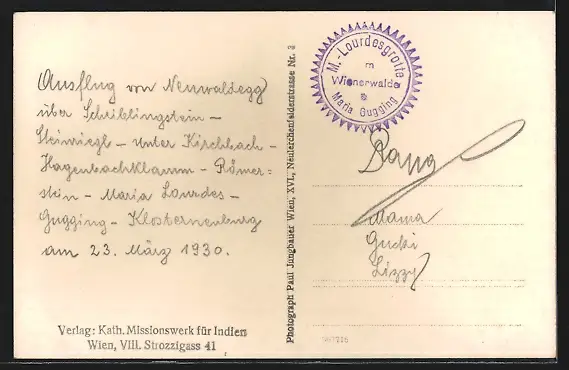 Ausflug von Neuwaldegg
über Scheiblingstein -
Steinriegl - Unter Kirchbach -
Hagenbachklamm - Römer=
stein - Maria Lourdes -
Gugging - Klosterneuburg
am 23. März 1930.
Verlag: Kath. Missionswerk für Indien
Wien, VIII. Strozzigass 41
Photograph Paul Jungbauer Wien, XVI., Neulerchenfelderstrasse Nr. 2
M.-Lourdesgrotte
Wienerwalde
Maria Gugging
Papa
Mama
Gucki
Lizzy